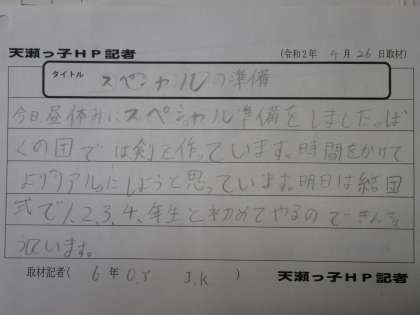 天瀬っ子HP記者 (令和2年 4月26日取材)
タイトル スペシャルの準備
今日昼休みにスペシャル準備をしました。ぼ
くの団では剣を作っています。時間をかけて
よりリアルにしようと思っています。明日は結団
式で1、2、3、4、年生と初めてやるので
います。
取材記者( 6年 O.Y J.K ) 天瀬っ子HP記者